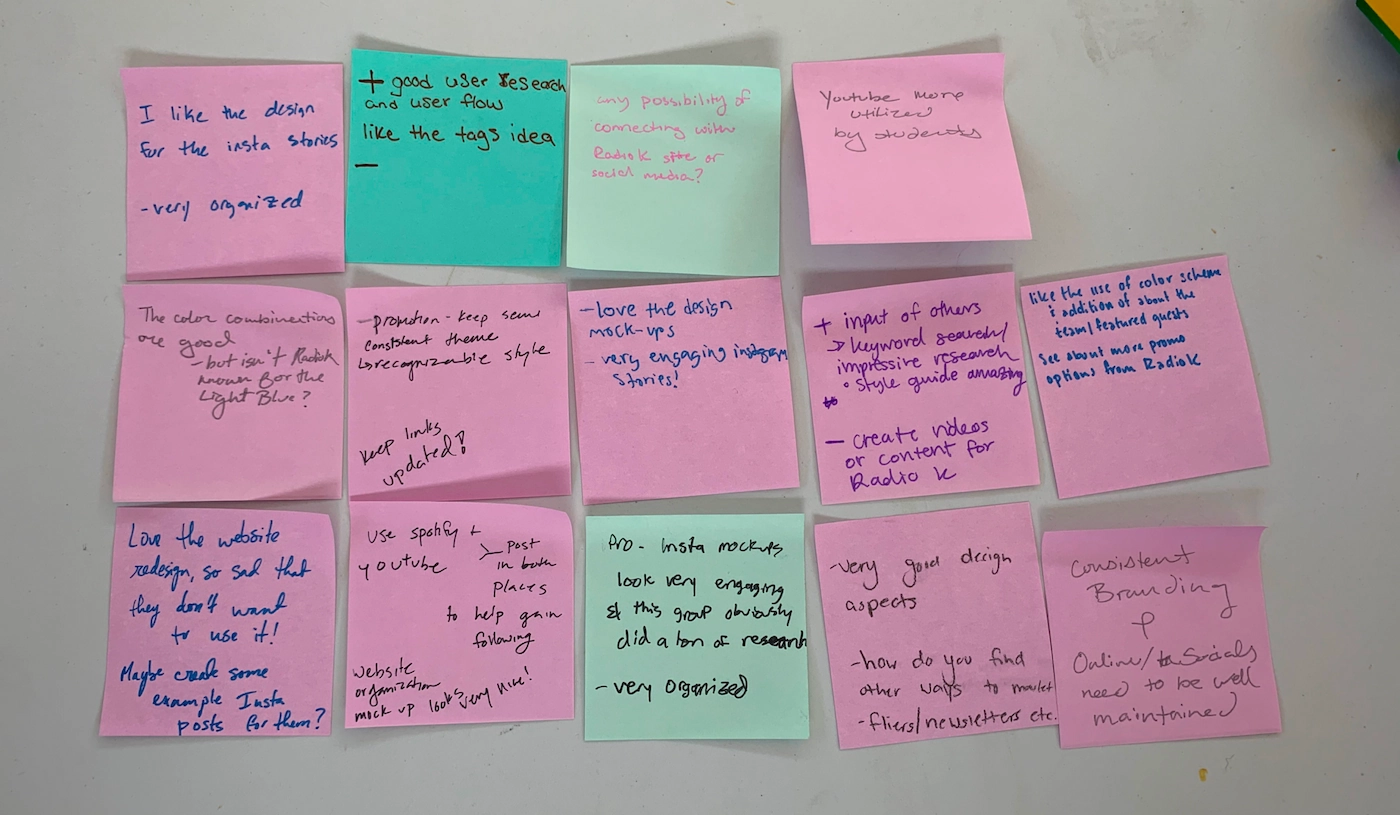 I like the design
for the insta stories
-very organized
+ good user research
and user flow
like the tags idea
—
any possibility of
connecting with
RadioK site or
social media?
Youtube more
utilized
by students
The color combinations
are good
- but isn't RadioK
known for the
Light Blue?
- promotion - keep semi
consistent theme
↳ recognizable style
keep links
updated!
- love the design
mock-ups
- very engaging instagram
stories!
+ input of others
→ keyword search/
impressive research
° style guide amazing
- create videos
or content for
Radio K
like the use of color scheme
& addition of about the
team/featured guests
see about more promo
options from RadioK
Love the website
redesign, so sad that
they don't want
to use it!
Maybe create some
example Insta
posts for them?
use spotify +
youtube
> post
in both
places
to help gain
following
website
organization
mock up looks very nice!
Pro - Insta mockups
look very engaging
& this group obviously
did a ton of research
- very organized
-very good design
aspects
-how do you find
other ways to market
-fliers/newsletters etc.
Consistent
Branding
+
Online/Socials
need to be well
maintained